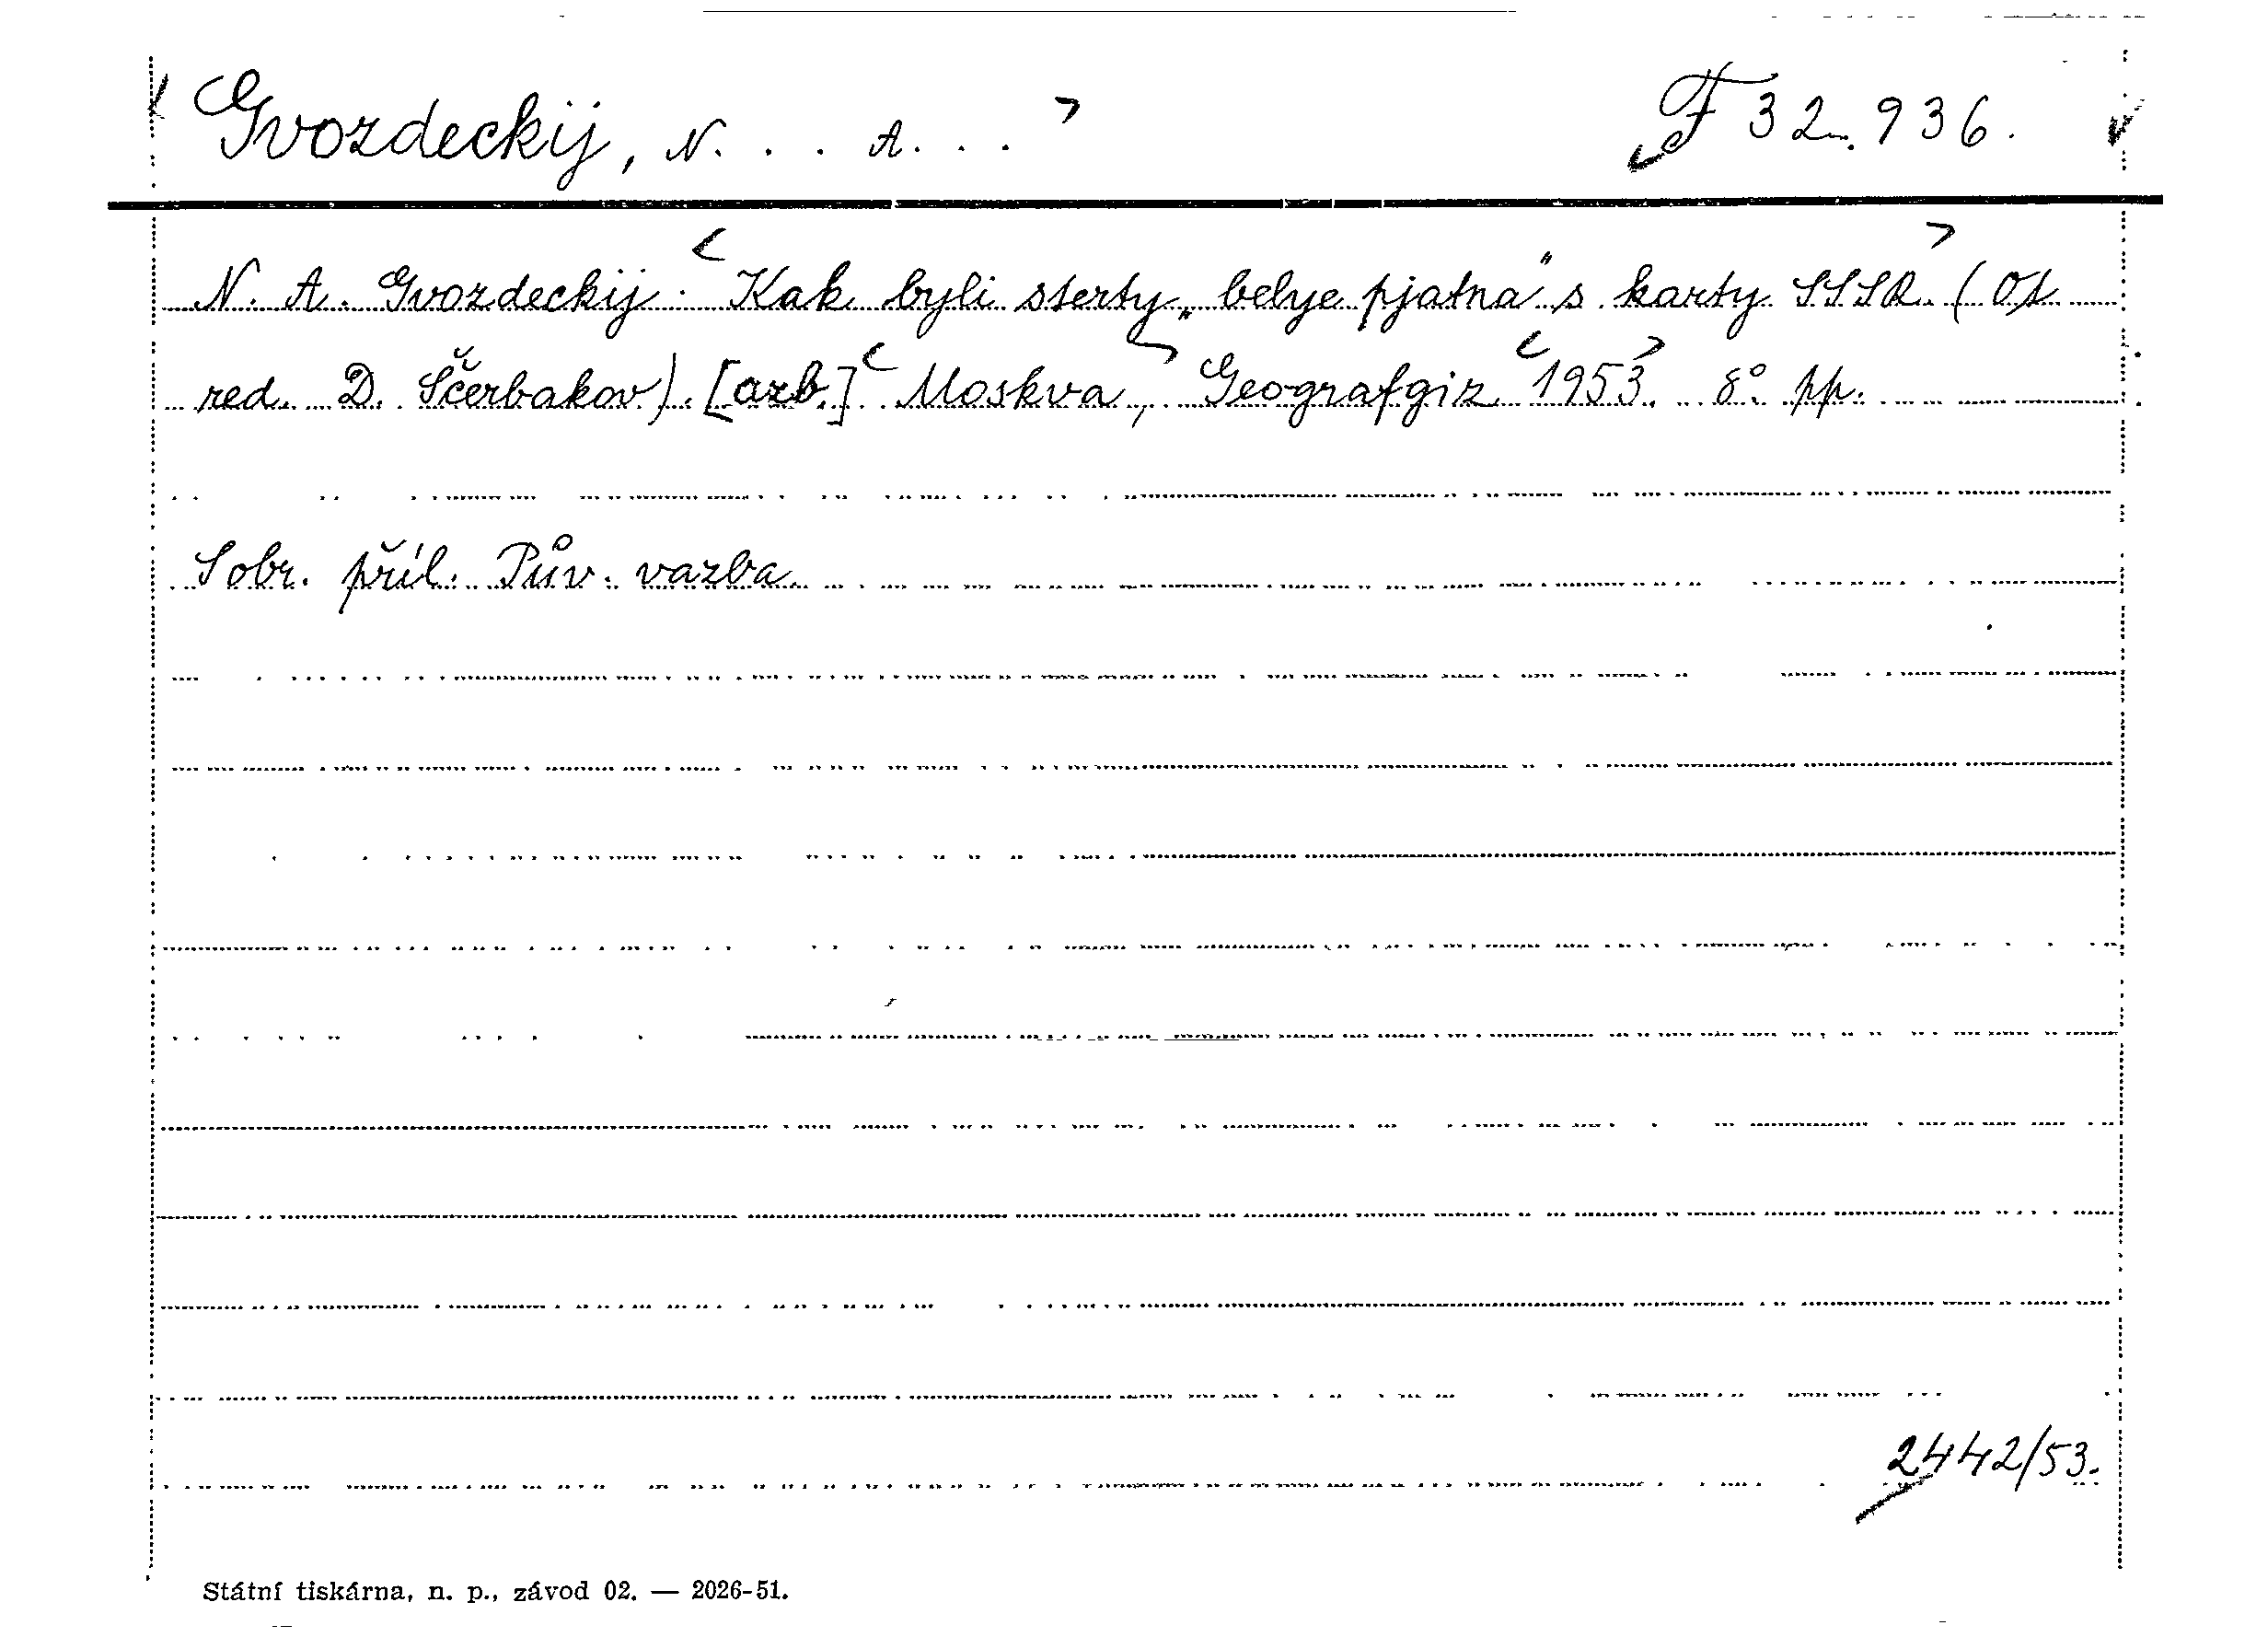 Gvozdeckij, N. . . A. . . F 32.936.
N. A. Gvozdeckij: Kak byli sterty „belye pjatna“ s karty SSSR. (Ot.
red. D. Ščerbakov). [azb.] Moskva, Geografgiz 1953. 8° pp.
Sobr. příl. Pův. vazba.
2442/53.
Státní tiskárna, n. p., závod 02. — 2026-51.